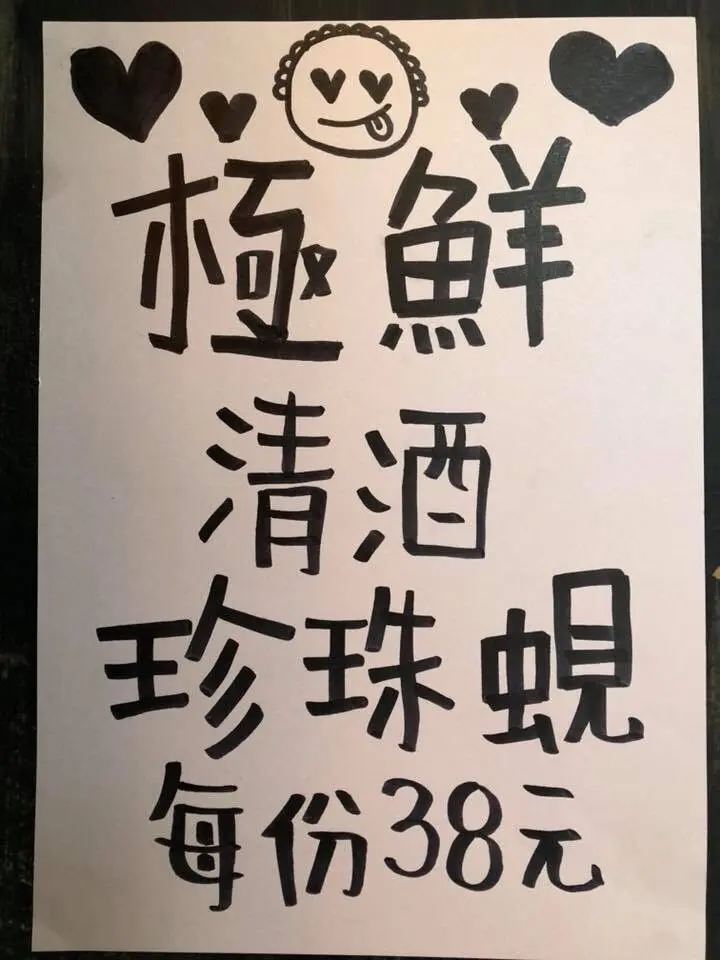 極鮮
清酒
珍珠蜆
每份38元